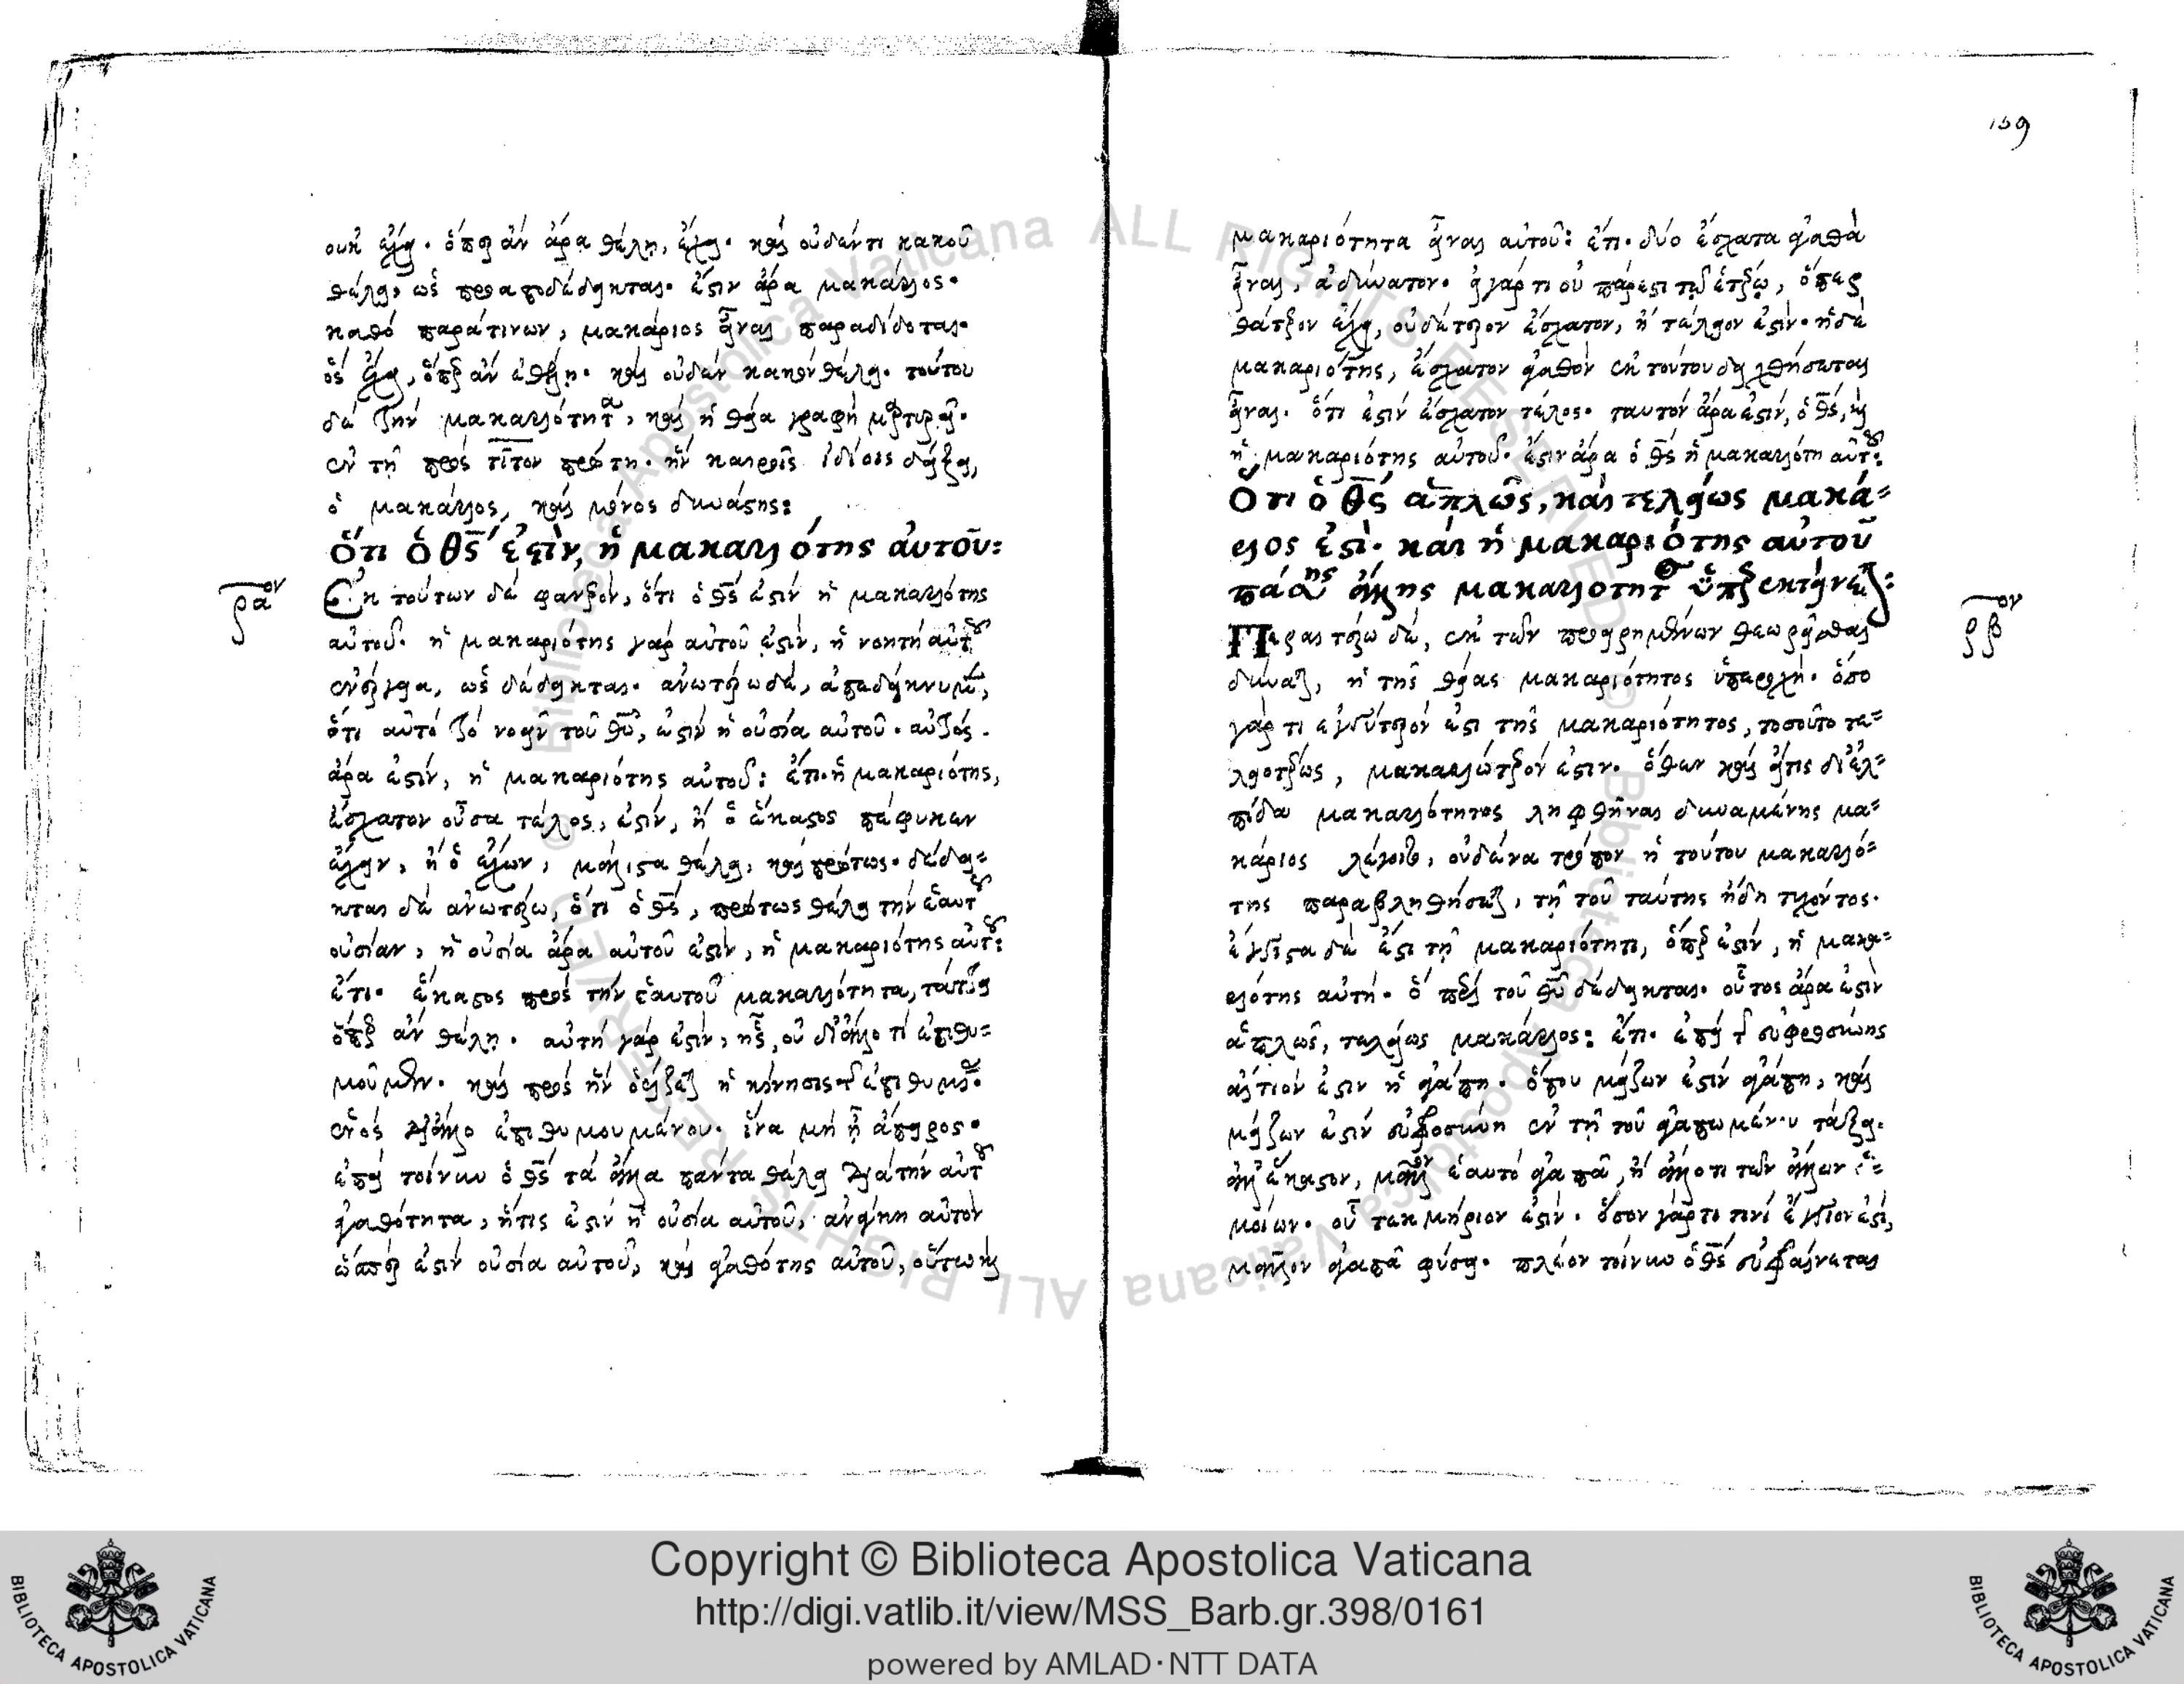 οὐκ ἔχει. ὅπερ ἂν ἄρα θέλῃ, ἔχει. καὶ οὐδέν τι κακοῦ
θέλει, ὡς προαποδέδεικται. ἔστιν ἄρα μακάριος.
καθό παρά τινων, μακάριος εἶναι παραδίδοται.
ὃς ἔχει, ὅπερ ἂν ἐθέλῃ. καὶ οὐδὲν κακὸν θέλει. τούτου
δὲ τὴν μακαριότητα, καὶ ἡ θεία γραφὴ μαρτυρεῖ.
ἐν τῇ πρὸς τίτον πρώτῃ. ἣν καιροῖς ἰδίοις δείξει,
ὁ μακάριος, καὶ μόνος δυνάστης:
ὅτι ὁ θς ἐστὶν, ἡ μακαριότης αὐτοῦ:
ραον
Ἐκ τούτων δὲ φανερὸν, ὅτι ὁ θς ἐστὶν ἡ μακαριότης
αὐτοῦ. ἡ μακαριότης γὰρ αὐτοῦ ἐστὶν, ἡ νοητὴ αὐτοῦ
ἐνέργεια, ὡς δέδεικται. ἀνωτέρω δὲ, ἀπεδείκνυμεν,
ὅτι αὐτὸ τὸ νοεῖν τοῦ θυ, ἐστὶν ἡ οὐσία αὐτοῦ. αὐτὸς
ἄρα ἐστὶν, ἡ μακαριότης αὐτοῦ: ἔτι. ἡ μακαριότης,
ἔσχατον οὖσα τέλος, ἐστὶν, ἢ ὃ ἕκαστος πέφυκεν
ἔχειν, ἢ ὃ ἔχων, μάλιστα θέλει, καὶ πρώτως. δέδει-
κται δὲ ἀνωτέρω, ὅτι ὁ θς, πρώτως θέλει τὴν ἑαυτοῦ
οὐσίαν, ἡ οὐσία ἄρα αὐτοῦ ἐστὶν, ἡ μακαριότης αὐτοῦ:
ἔτι. ἕκαστος πρὸς τὴν ἑαυτοῦ μακαριότητα, τάττει
ὅπερ ἂν θέλῃ. αὐτὴ γάρ ἐστιν, ἧς, οὐ δι' ἄλλο τί ἐπιθυ-
μοῦμεν. καὶ πρὸς ἣν ὁρίζεται ἡ κίνησις τοῦ ἐπιθυμοῦ
ἑνὸς δι' ἄλλο ἐπιθυμουμένου. ἵνα μὴ ᾖ ἄπειρος.
ἐπεὶ τοίνυν ὁ θς τὰ ἄλλα πάντα θέλει διὰ τὴν αὐτοῦ
ἀγαθότητα, ἥτις ἐστὶν ἡ οὐσία αὐτοῦ, ἀνάγκη αὐτὸν
ὥσπερ ἐστὶν οὐσία αὐτοῦ, καὶ ἀγαθότης αὐτοῦ, οὕτω καὶ
159
μακαριότητα εἶναι αὐτοῦ: ἔτι. δύο ἔσχατα ἀγαθὰ
εἶναι, ἀδύνατον. εἰ γάρ τι οὐ πάρεστι τῷ ἑτέρῳ, ὅπερ
θάτερον ἔχει, οὐδέτερον ἔσχατον, ἢ τέλειον ἐστὶν. ἡ δὲ
μακαριότης, ἔσχατον ἀγαθὸν ἐκ τούτου δειχθήσεται
εἶναι. ὅτι ἐστὶν ἔσχατον τέλος. ταυτὸν ἄρα ἐστὶν, ὁ θς, καὶ
ἡ μακαριότης αὐτοῦ. ἔστιν ἄρα ὁ θς ἡ μακαριότης αὐτοῦ:
Ὅτι ὁ θς ἁπλῶς, καὶ τελείως μακά-
ριος ἐστὶ. καὶ ἡ μακαριότης αὐτοῦ
πάσης ἄλλης μακαριότητος ὑπερεκτείνεται:
ρβον
Περαιτέρω δὲ, ἐκ τῶν προειρημένων θεωρεῖσθαι
δύναται, ἡ τῆς θείας μακαριότητος ὑπεροχή. ὅσο
γάρ τι ἐγγύτερόν ἐστι τῆς μακαριότητος, τοσοῦτο τε-
λειοτέρως, μακαριώτερόν ἐστιν. ὅθεν καὶ εἴ τις δι' ἐλ-
πίδα μακαριότητος ληφθῆναι δυναμένης μα-
κάριος λέγοιτο, οὐδένα τρόπον ἡ τούτου μακαριό-
της παραβληθήσεται, τῇ τοῦ ταύτης ἤδη τυχόντος.
ἔγγιστα δὲ ἐστι τῇ μακαριότητι, ὅπερ ἐστὶν, ἡ μακα-
ριότης αὐτή. ὃ περὶ τοῦ θυ δέδεικται. οὗτος ἄρα ἐστὶν
ἁπλῶς, τελείως μακάριος: ἔτι. ἐπεὶ τῆς εὐφροσύνης
αἴτιόν ἐστιν ἡ ἀγάπη. ὅπου μείζων ἐστὶν ἀγάπη, καὶ
μείζων ἐστὶν εὐφροσύνη ἐν τῇ τοῦ ἀγαπωμένου τάξει.
ἀλλ' ἕκαστον, μᾶλλον ἑαυτὸ ἀγαπᾷ, ἢ ἄλλο τι τῶν ἄλλων
μοίων. οὗ τεκμήριον ἐστὶν. ὅσον γάρ τι τινὶ ἔγγιον ἐστὶ,
μᾶλλον ἀγαπᾷ φύσει. πλέον τοίνυν ὁ θς εὐφραίνεται
Copyright © Biblioteca Apostolica Vaticana
http://digi.vatlib.it/view/MSS_Barb.gr.398/0161
powered by AMLAD·NTT DATA
BIBLIOTECA APOSTOLICA VATICANA
BIBLIOTECA APOSTOLICA VATICANA
ALL RIGHTS RESERVED © Biblioteca Apostolica Vaticana